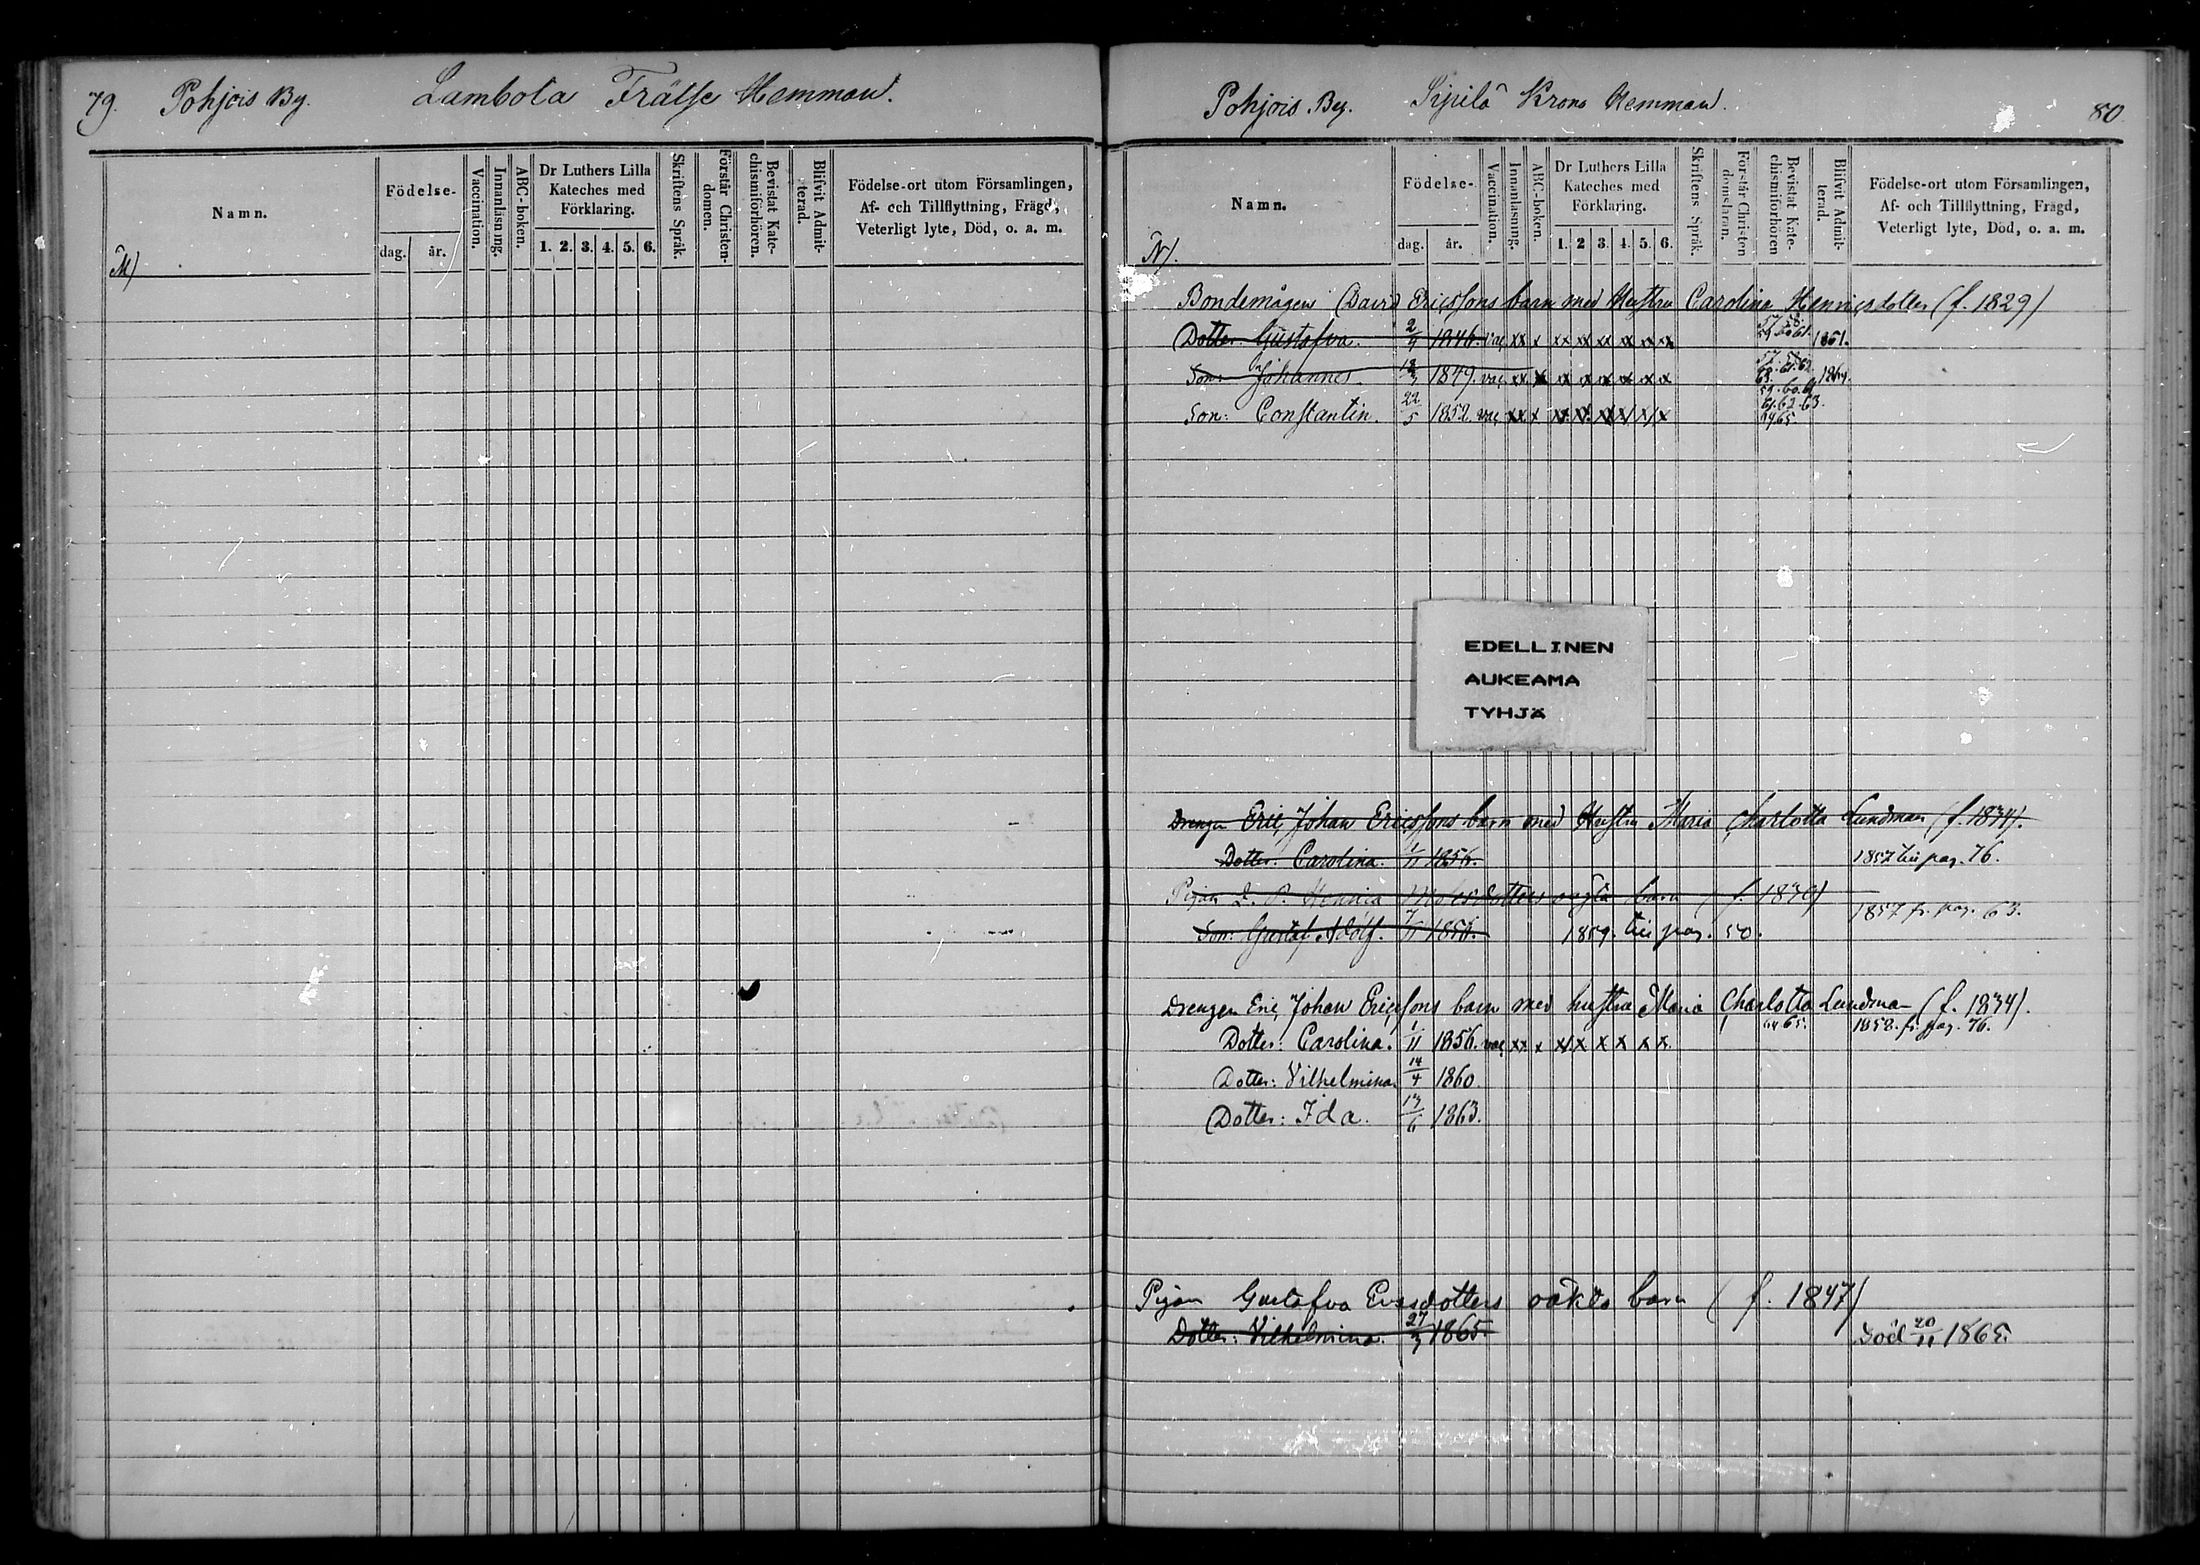 79. Pohjois By. Lambola Frälse Hemman.
Namn.
Födelse-
dag. år.
Vaccination.
Innanläsning.
ABC-boken.
Dr Luthers Lilla
Kateches med
Förklaring.
1. 2. 3. 4. 5. 6.
Skriftens Språk.
Förstår Christen-
domen.
Bevistat Kate-
chismiförhören.
Blifvit Admit-
terad.
Födelse-ort utom Församlingen,
Af- och Tillflyttning, Frägd,
Veterligt lyte, Död, o. a. m.
M)
Pohjois By. Sipilä Krono Hemman. 80
Namn.
Födelse-
dag. år.
Vaccination.
Innanläsning.
ABC-boken.
Dr Luthers Lilla
Kateches med
Förklaring.
1. 2 3. 4. 5. 6.
Skriftens Språk.
Förstår Christen
domsläran.
Bevistat Kate-
chismiförhören
Blifvit Admit-
terad.
Födelse-ort utom Församlingen,
Af- och Tillflyttning, Frägd,
Veterligt lyte, Död, o. a. m.
N).
Bondemågen David Ericssons barn med Hustru Carolina Henricsdotter (f. 1829)
Dotter: Gustafva. 1846. vac xx x xx xx xx x x x 1861.
Son: Johannes 1849. vac xx x x x x x x x
Son: Constantin. 22/5 1852. vac xx x
EDELLINEN
AUKEAMA
TYHJÄ
Drengen Eric Johan Ericssons barn med Hustru Maria Charlotta Lundman (f. 1834).
Dotter: Carolina. 1/11 1856. 1857 till pag. 76.
Pigan barn
1857 fr. pag. 63.
Son: Gustaf Adolf. 1856. 1859. till pag. 50.
Drengen Eric Johan Ericssons barn med hustru Maria Charlotta Lundma- (f. 1834).
64 65. 1858. fr. pag. 76.
Dotter: Carolina. 1/11 1856. vac xx x xx x x x x x
Dotter: Vilhelmina 14/4 1860.
Dotter: Ida. 13/6 1863.
Pigan Gustafva oäkta barn (f. 1847)
Dotter: Vilhelmina. 1865. Död 20/11 1865.